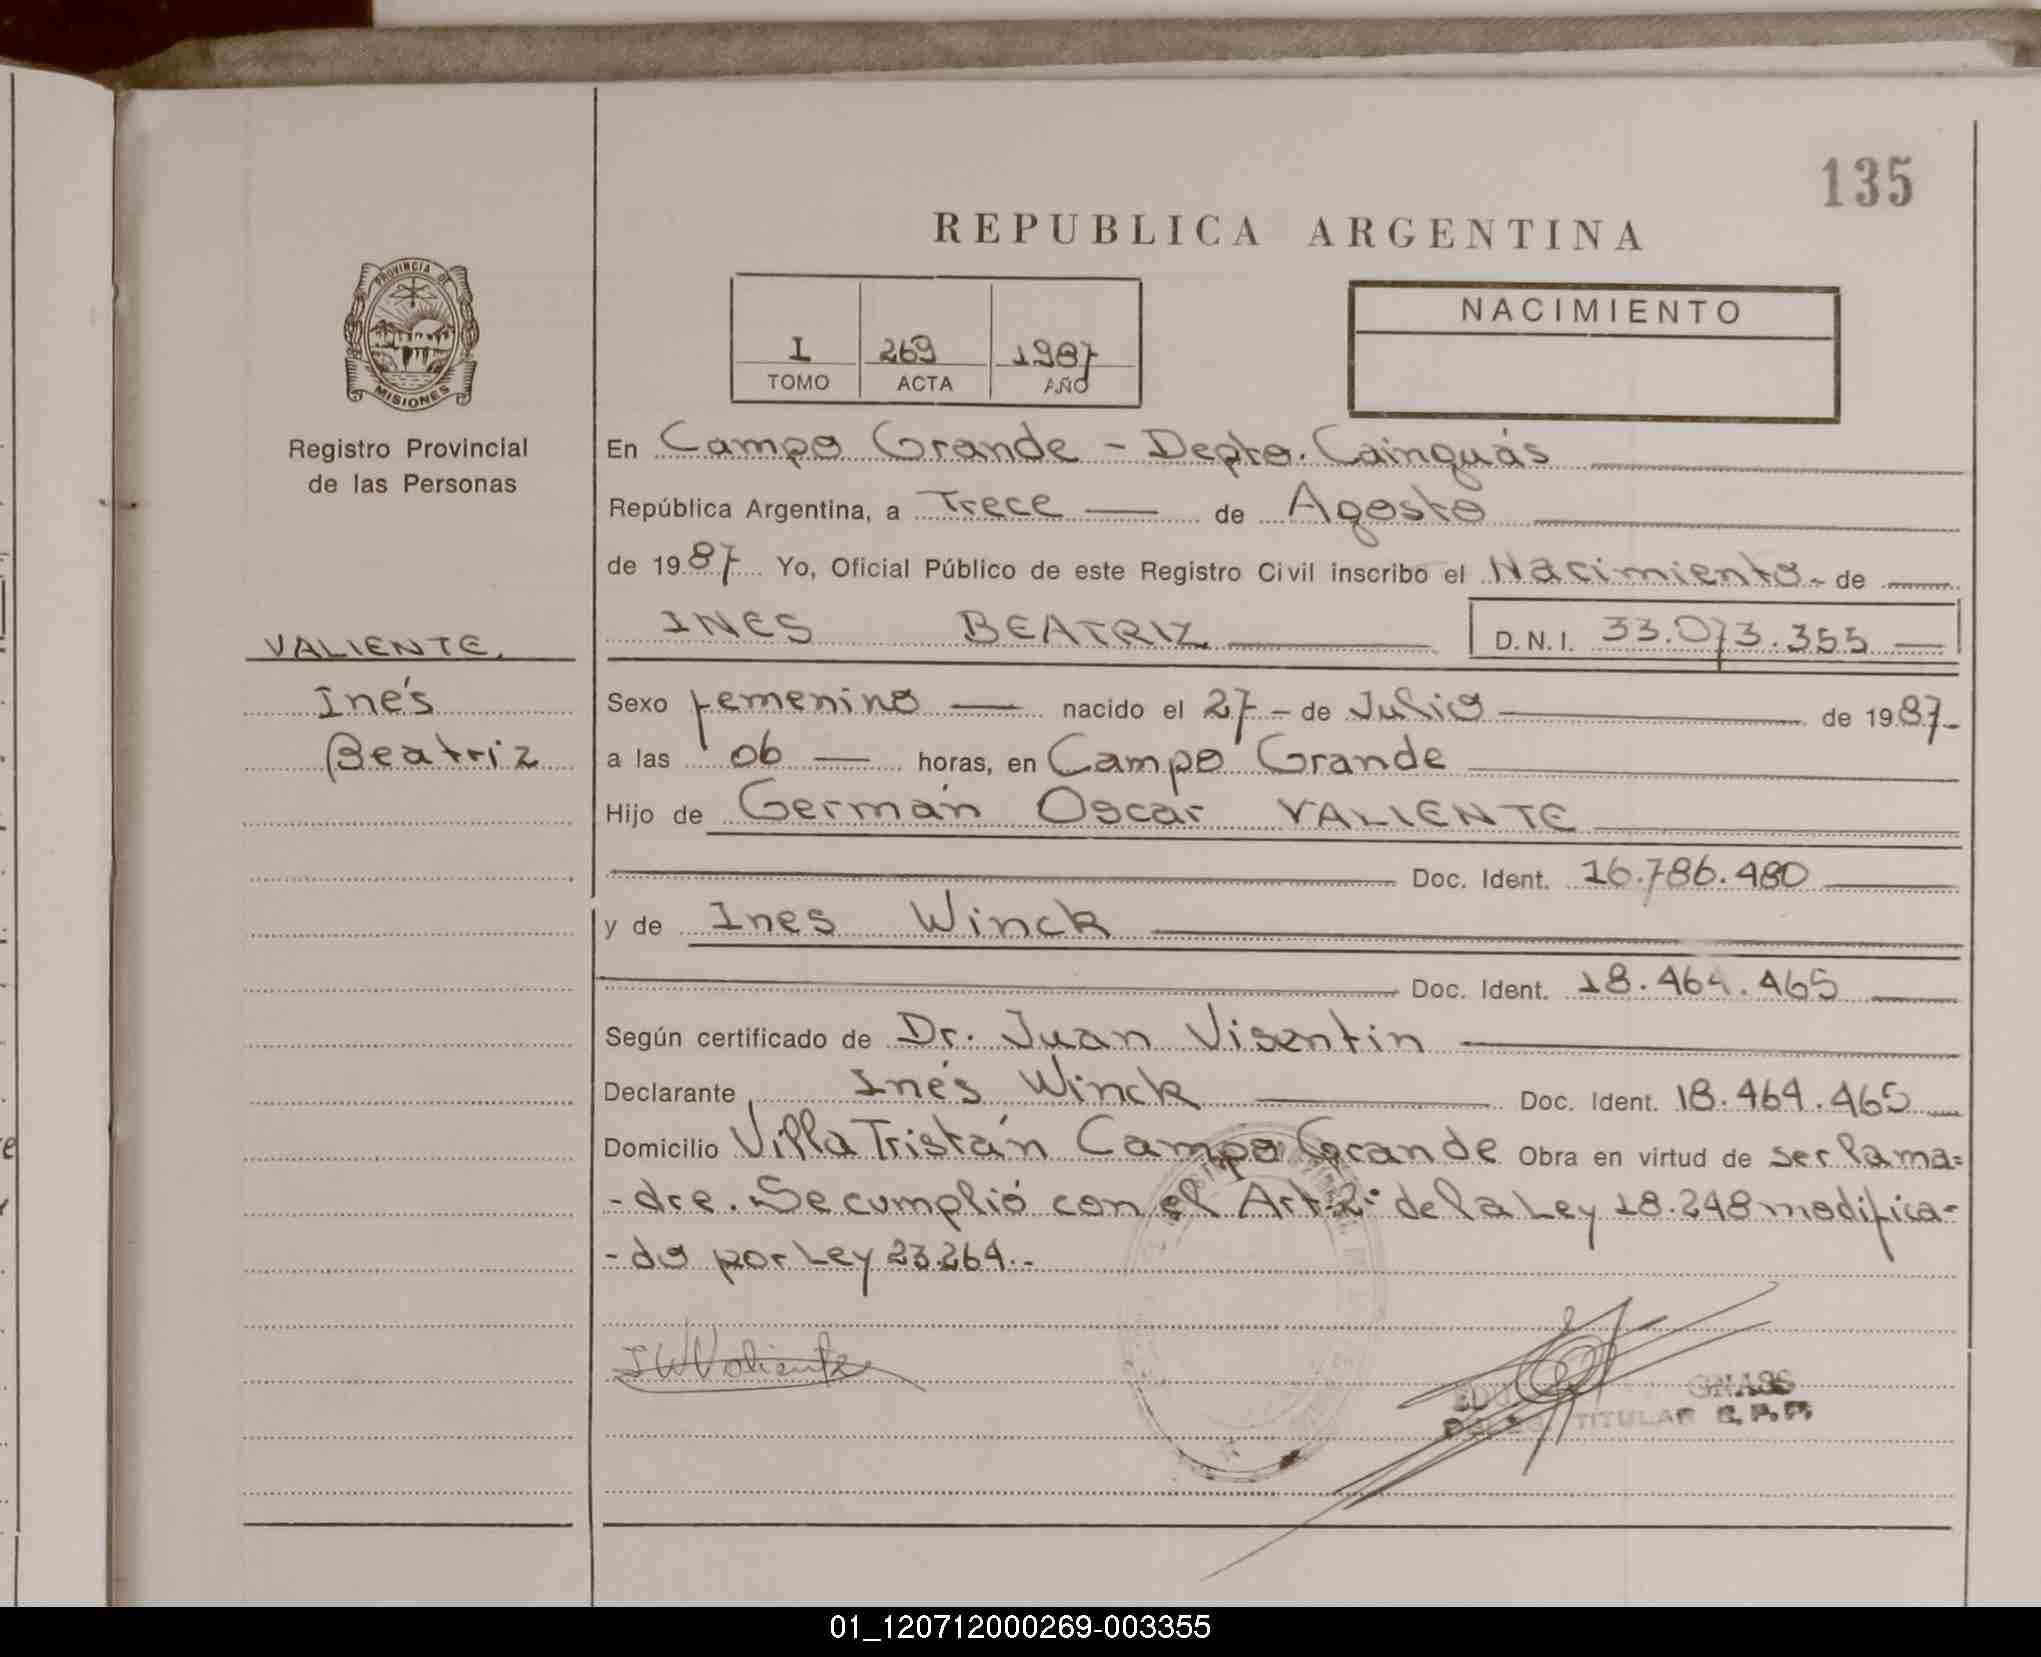 135
REPUBLICA ARGENTINA
PROVINCIA DE
MISIONES
Registro Provincial
de las Personas
I 269 1987
TOMO ACTA AÑO
NACIMIENTO
En Campo Grande - Depto. Cainguás
República Argentina, a Trece de Agosto
de 1987 Yo, Oficial Público de este Registro Civil inscribo el Nacimiento - de
VALIENTE,
Inés
Beatriz
INES BEATRIZ D.N.I. 33.073.355
Sexo femenino nacido el 27 - de Julio de 1987-
a las 06 horas, en Campo Grande
Hijo de Germán Oscar VALIENTE
Doc. Ident. 16.786.480
y de Ines Winck
Doc. Ident. 18.464.465
Según certificado de Dr. Juan Visentin
Declarante Inés Winck Doc. Ident. 18.464.465
Domicilio Villa Tristán Campo Grande Obra en virtud de ser la ma=
-dre. Se cumplió con el Art. 2º de la Ley 18.248 modifica-
-do por Ley 23.264.-
I W Valiente
GNASS
TITULAR R.P.P.
01_120712000269-003355